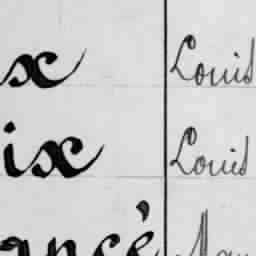 x Louis
ix Louis
ancé